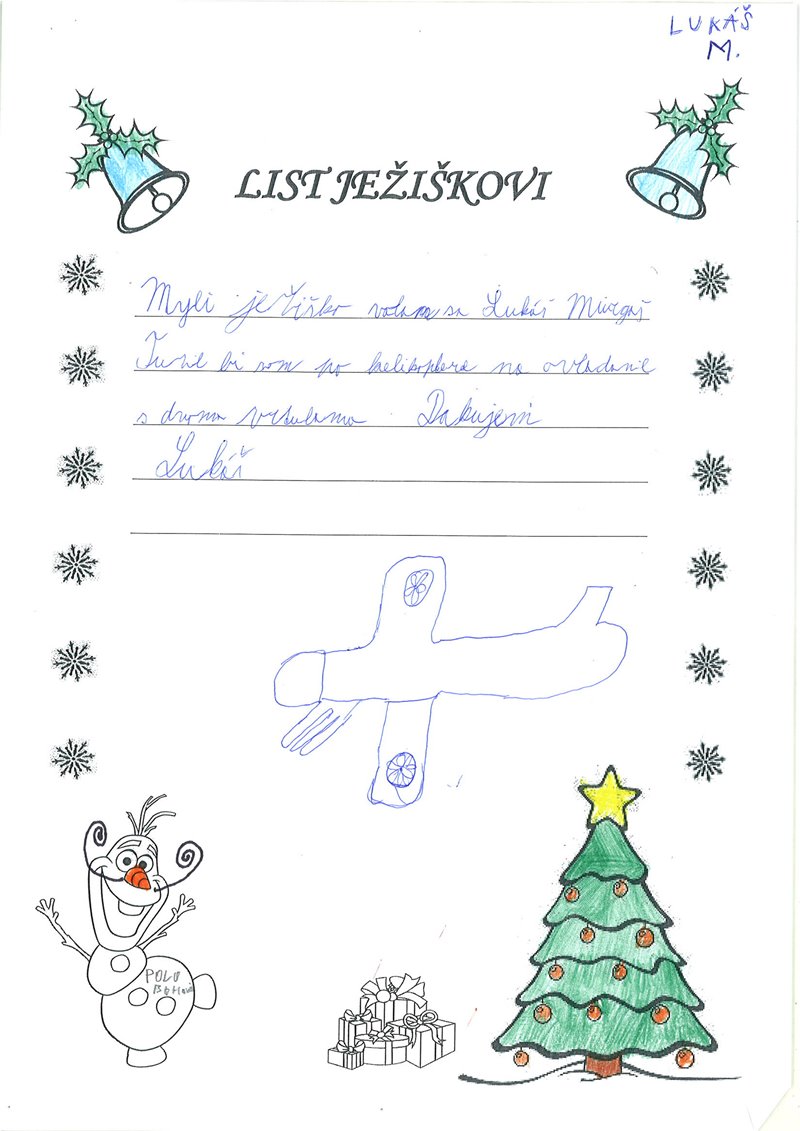 LUKÁŠ
M.
LIST JEŽIŠKOVI
Myli ježiško volam sa Lukáš Murgaš
bi som po helikoptere na ovladanie
s dvoma vrtulama Dakujem
Lukáš
POLO